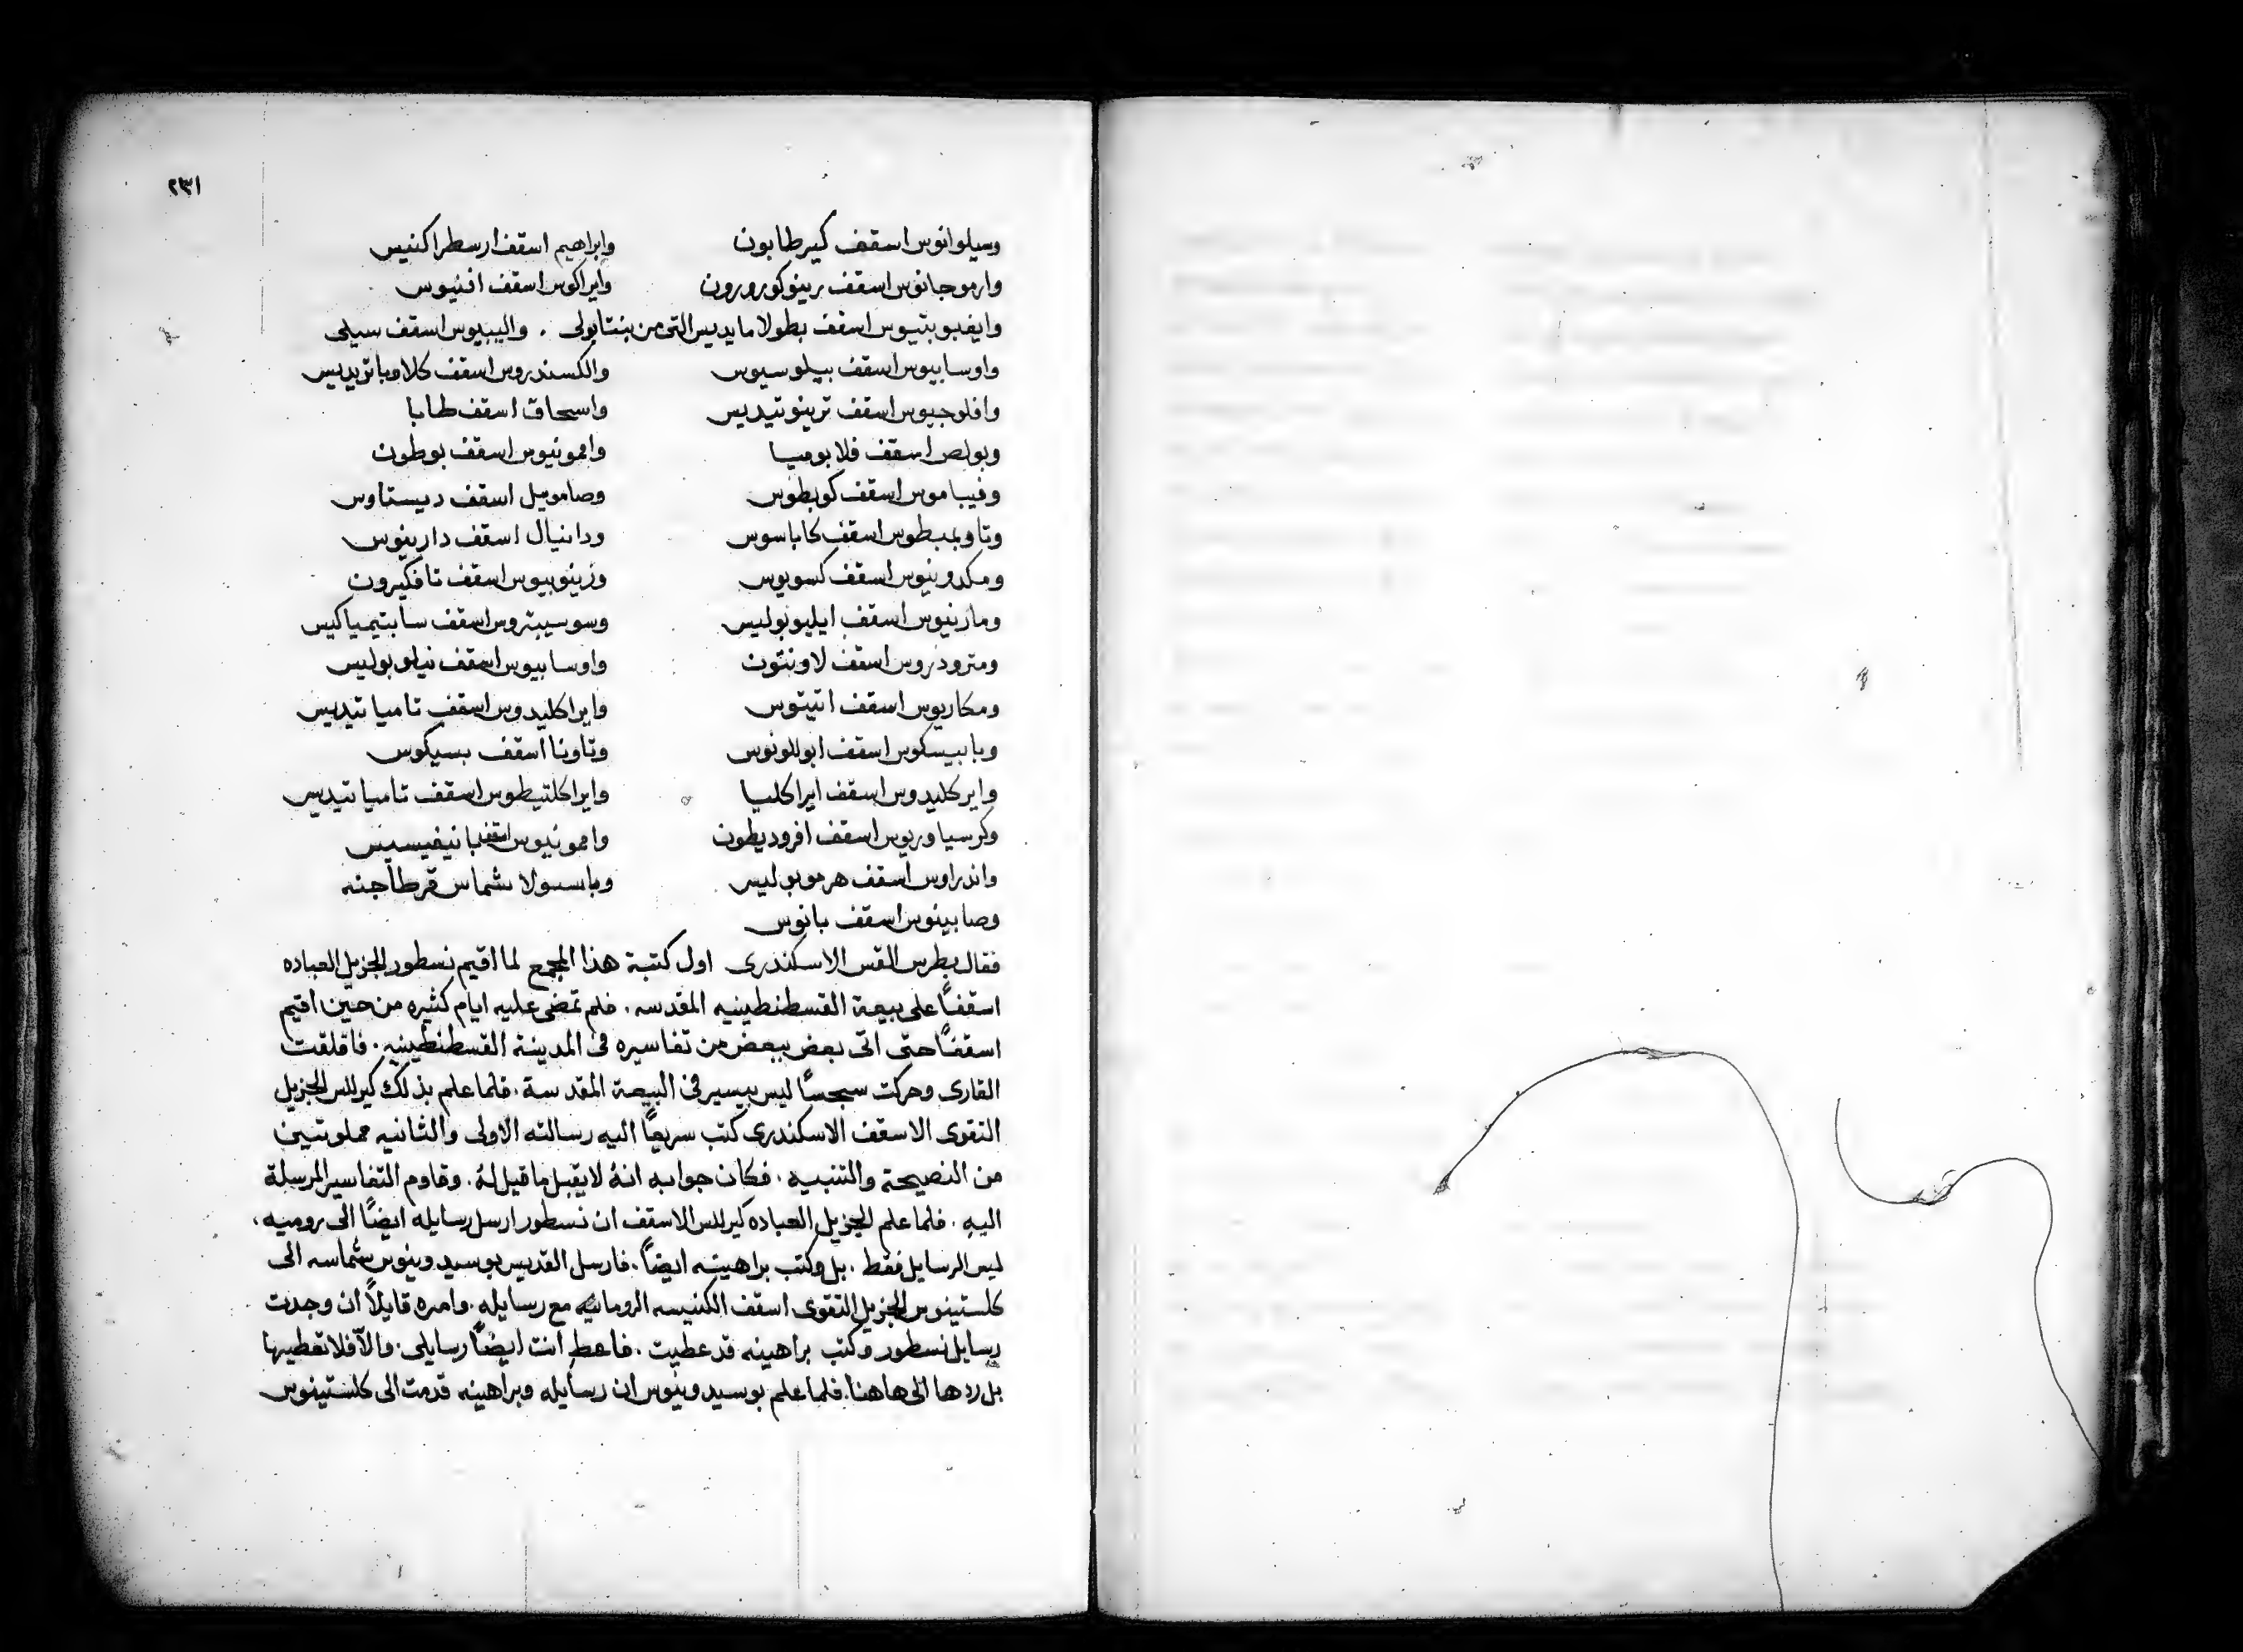 ٢٣١
وسيلوانوس اسقف كيرطابون وابراهيم اسقف ارسطراكنيس
وارموجانوس اسقف رينوكورورون وايراكوس اسقف افنيوس
وايفبوبتيوس اسقف بطولامايديس التى من بنتابولى . والببيوس اسقف سيلى
واوسابيوس اسقف بيلوسيوس والكسندروس اسقف كلاوباتريديس
وافلوجيوس اسقف ترينوتيديس واسحاق اسقف طابا
وبولص اسقف فلابوميا وامونيوس اسقف بوطون
وفيباموس اسقف كوبطوس وصامويل اسقف ديستاوس
وتاوبمبطوس اسقف كاباسوس ودانيال اسقف دارينوس
ومكدونيوس اسقف كسويوس وزينوبيوس اسقف تافكيرون
ومارينوس اسقف ايليوبوليس وسوسيبتروس اسقف سابتيمياكيس
ومترودروس اسقف لاونتون واوسابيوس اسقف نيلوبوليس
ومكاريوس اسقف انتيتوس وايراكليدوس اسقف تامياتيديس
وبابيسكوس اسقف ابوللونوس وتاونا اسقف بسيكوس
وايركليدوس اسقف ايراكليا وايراكلتيطوس اسقف تامياتيديس
وكرسياوريوس اسقف افروديطون وامونيوس اسقف بانيفيسيس
واندراوس اسقف هرموبوليس وباسسولا شماس قرطاجنه
وصابينوس اسقف بانوس
فقال بطرس القس الاسكندرى اول كتبة هذا المجمع لما اقيم نسطور الجزيل العباده
اسقفًا على بيعة القسطنطينيه المقدسه . فلم تمضى عليه ايام كثيره من حين اقيم
اسقفًا حتى اتى بعض ببعض من تفاسيره فى المدينة القسطنطينيه . فاقلقت
القارى وحركت سجسًا ليس بيسير فى البيعة المقدسة . فلما علم بذلك كيرللس الجزيل
التقوى الاسقف الاسكندرى كتب سريعًا اليه رسالته الاولى والثانيه مملوتين
من النصيحة والتنبيه . فكان جوابه انهُ لا يقبل ما قيل لهُ . وقاوم التفاسير المرسلة
اليهِ . فلما علم الجزيل العباده كيرللس الاسقف ان نسطور ارسل رسايله ايضًا الى روميه ،
ليس الرسايل فقط . بل وكتب براهينه ايضًا . فارسل القديس بوسيدونيوس شماسه الى
كلستينوس الجزيل التقوى اسقف الكنيسه الرومانيه مع رسايله . وامره قايلاً ان وجدت
رسايل نسطور وكتب براهينه قد عطيت . فاعطِ انت ايضًا رسايلى . والاّ فلا تعطيها
بل ردها الى هاهنا . فلما علم بوسيدونيوس ان رسايله وبراهينه قدمت الى كلستينوس